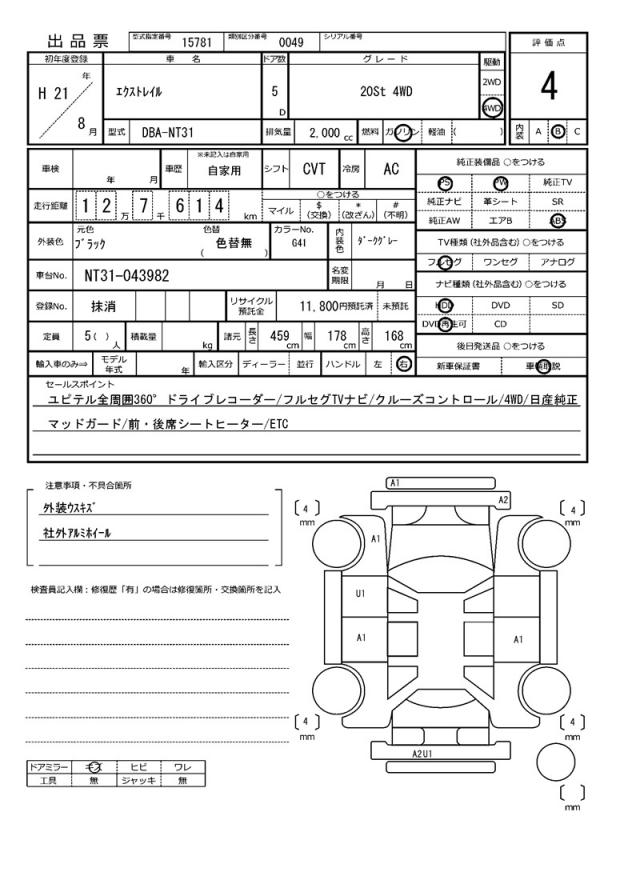 出品票 型式指定番号 15781 類別区分番号 0049 シリアル番号
評価点
4
内装 A B C
初年度登録 車名 ドア数 グレード 駆動
H 21 年 8 月 エクストレイル 5 D 20St 4WD 2WD 4WD
型式 DBA-NT31 排気量 2,000 cc 燃料 ガソリン 軽油 ( )
車検 年 月 車歴 ※未記入は自家用 自家用 シフト CVT 冷房 AC
走行距離 1 2 万 7 千 6 1 4 km ○をつける
マイル $ (交換) * (改ざん) # (不明)
外装色 元色 ブラック 色替 ( 色替無 ) カラーNo. G41 内装色 ダークグレー
車台No. NT31-043982 名変期限 月 日
登録No. 抹消 リサイクル預託金 11,800円預託済 未預託
定員 5 ( ) 人 積載量 kg 諸元 長さ 459 cm 幅 178 cm 高さ 168 cm
輸入車のみ⇒ モデル年式 年 輸入区分 ディーラー 並行 ハンドル 左 右
純正装備品 ○をつける
PS PW 純正TV
純正ナビ 革シート SR
純正AW エアB ABS
TV種類 (社外品含む) ○をつける
フルセグ ワンセグ アナログ
ナビ種類 (社外品含む) ○をつける
HDD DVD SD
DVD再生可 CD
後日発送品 ○をつける
新車保証書 車輌取説
セールスポイント
ユピテル全周囲360°ドライブレコーダー/フルセグTVナビ/クルーズコントロール/4WD/日産純正
マッドガード/前・後席シートヒーター/ETC
注意事項・不具合箇所
外装ウスキズ
社外アルミホイール
検査員記入欄：修復歴「有」の場合は修復箇所・交換箇所を記入
ドアミラー キズ ヒビ ワレ
工具 無 ジャッキ 無
A1
A2
4 mm
4 mm
A1
U1
A1
A1
4 mm
4 mm
A2U1
mm